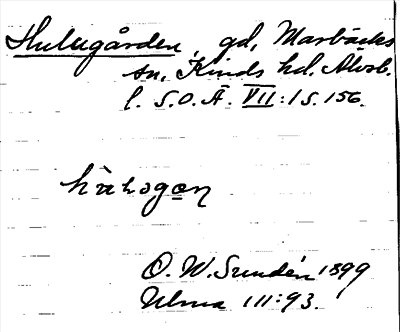 Hulugården, gd, Marbäcks
sn, Kinds hd. Älvsb.
l. S.O.Ä. VII:1 s. 156.
O. W. Sundén 1899
Ulma 111:93.